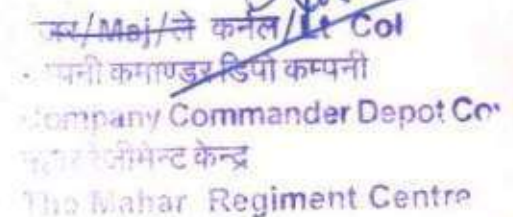 जर/Maj/ले कर्नल/Lt Col
पनी कमाण्डर डिपो कम्पनी
Company Commander Depot Co
महार रेजीमेन्ट केन्द्र
The Mahar Regiment Centre